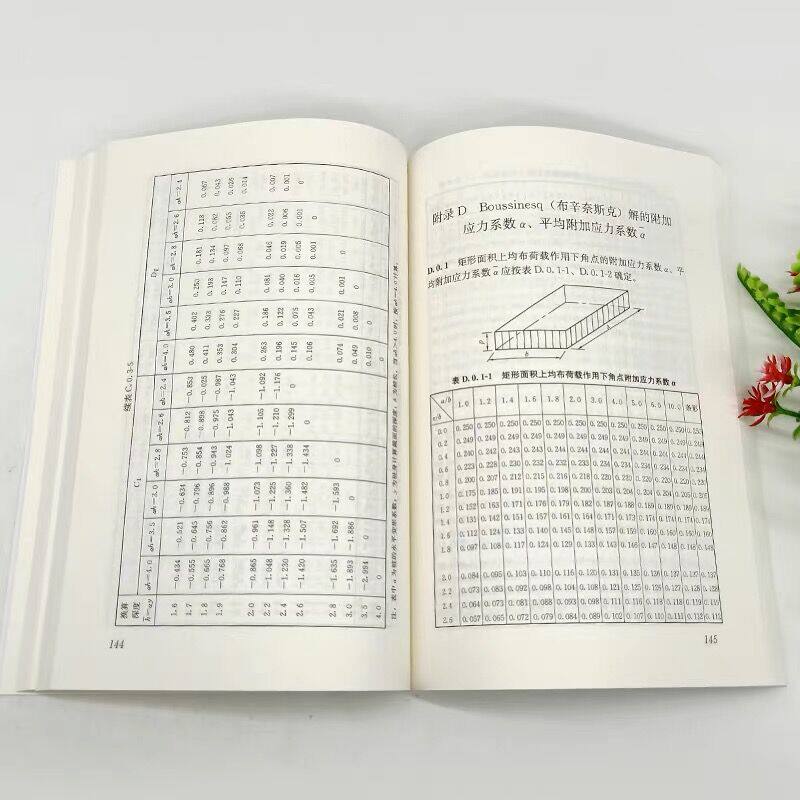 续表 C.0.3-5
换算深度 C_I D_Ⅱ
h̄=αy αh=4.0 αh=3.5 αh=3.0 αh=2.8 αh=2.6 αh=2.4 αh=4.0 αh=3.5 αh=3.0 αh=2.8 αh=2.6 αh=2.4
1.6 −0.434 −0.521 −0.634 −0.753 −0.812 −0.853 0.480 0.402 0.250 0.181 0.118 0.067
1.7 −0.555 −0.645 −0.796 −0.854 −0.898 −0.025 0.411 0.333 0.193 0.134 0.082 0.043
1.8 −0.665 −0.756 −0.896 −0.943 −0.975 −0.987 0.353 0.276 0.147 0.097 0.055 0.026
1.9 −0.768 −0.862 −0.988 −1.024 −1.043 −1.043 0.304 0.227 0.110 0.068 0.035 0.014
2.0 −0.865 −0.961 −1.073 −1.098 −1.105 −1.092 0.263 0.186 0.081 0.046 0.022 0.007
2.2 −1.048 −1.148 −1.225 −1.227 −1.210 −1.176 0.196 0.122 0.040 0.019 0.006 0.001
2.4 −1.230 −1.328 −1.360 −1.338 −1.299 0 0.145 0.075 0.016 0.005 0.001 0
2.6 −1.420 −1.507 −1.482 −1.434 0 0.106 0.043 0.005 0.001 0
2.8 −1.635 −1.692 −1.593 0 0.074 0.021 0.001 0
3.0 −1.893 −1.886 0 0.049 0.008 0
3.5 −2.994 0 0.010 0
4.0 0 0
144
附录 D Boussinesq（布辛奈斯克）解的附加
应力系数 α、平均附加应力系数 ᾱ
D.0.1 矩形面积上均布荷载作用下角点的附加应力系数 α、平
均附加应力系数 ᾱ 应按表 D.0.1-1、D.0.1-2 确定。
p
b
表 D.0.1-1 矩形面积上均布荷载作用下角点附加应力系数 α
a/b 1.0 1.2 1.4 1.6 1.8 2.0 3.0 4.0 5.0 6.0 10.0 条形
z/b
0.0 0.250 0.250 0.250 0.250 0.250 0.250 0.250 0.250 0.250 0.250 0.250 0.250
0.2 0.249 0.249 0.249 0.249 0.249 0.249 0.249 0.249 0.249 0.249 0.249 0.249
0.4 0.240 0.242 0.243 0.243 0.244 0.244 0.244 0.244 0.244 0.244 0.244 0.244
0.6 0.223 0.228 0.230 0.232 0.232 0.233 0.234 0.234 0.234 0.234 0.234 0.234
0.8 0.200 0.207 0.212 0.215 0.216 0.218 0.220 0.220 0.220 0.220 0.220 0.220
1.0 0.175 0.185 0.191 0.195 0.198 0.200 0.203 0.204 0.204 0.204 0.205 0.205
1.2 0.152 0.163 0.171 0.176 0.179 0.182 0.187 0.188 0.189 0.189 0.189 0.189
1.4 0.131 0.142 0.151 0.157 0.161 0.164 0.171 0.173 0.174 0.174 0.174 0.174
1.6 0.112 0.124 0.133 0.140 0.145 0.148 0.157 0.159 0.160 0.160 0.160 0.160
1.8 0.097 0.108 0.117 0.124 0.129 0.133 0.143 0.146 0.147 0.148 0.148 0.148
2.0 0.084 0.095 0.103 0.110 0.116 0.120 0.131 0.135 0.136 0.137 0.137 0.137
2.2 0.073 0.083 0.092 0.098 0.104 0.108 0.121 0.125 0.126 0.127 0.128 0.128
2.4 0.064 0.073 0.081 0.088 0.093 0.098 0.111 0.116 0.118 0.118 0.119 0.119
2.6 0.057 0.065 0.072 0.079 0.084 0.089 0.102 0.107 0.110 0.111 0.112 0.112
145